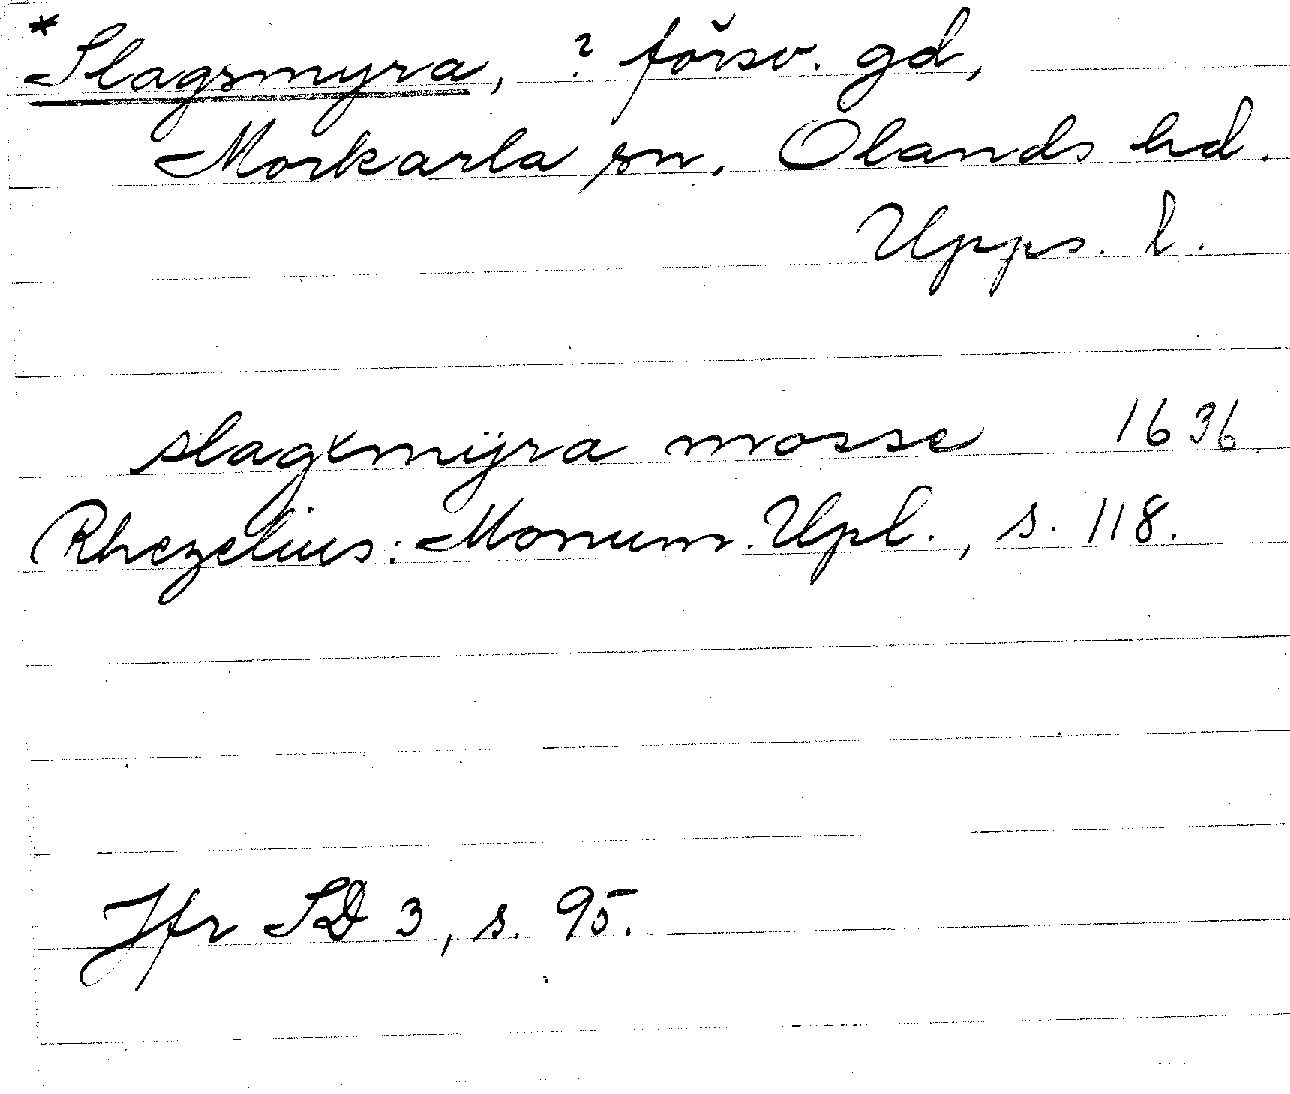 *Slagsmyra, ? försv. gd,
Morkarla sn, Olands hd.
Upps. l.
slagxmÿra mosse 1636
Rhezelius: Monum. Upl., s. 118.
Jfr SD 3, s. 95.